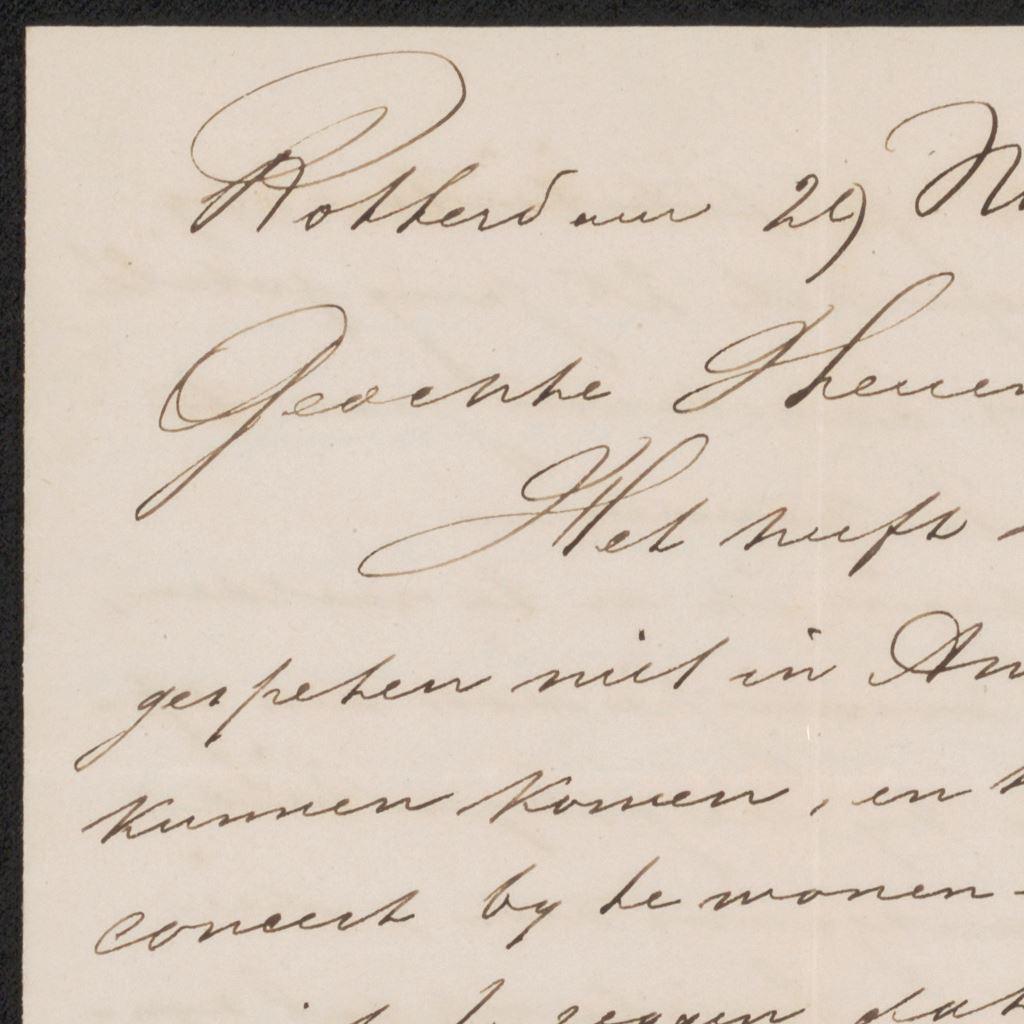 Rotterdam 29 N
Geachte Heer
Het heeft
gespeten niet in Am
kunnen komen, en
concert by te wonen
zeggen dat